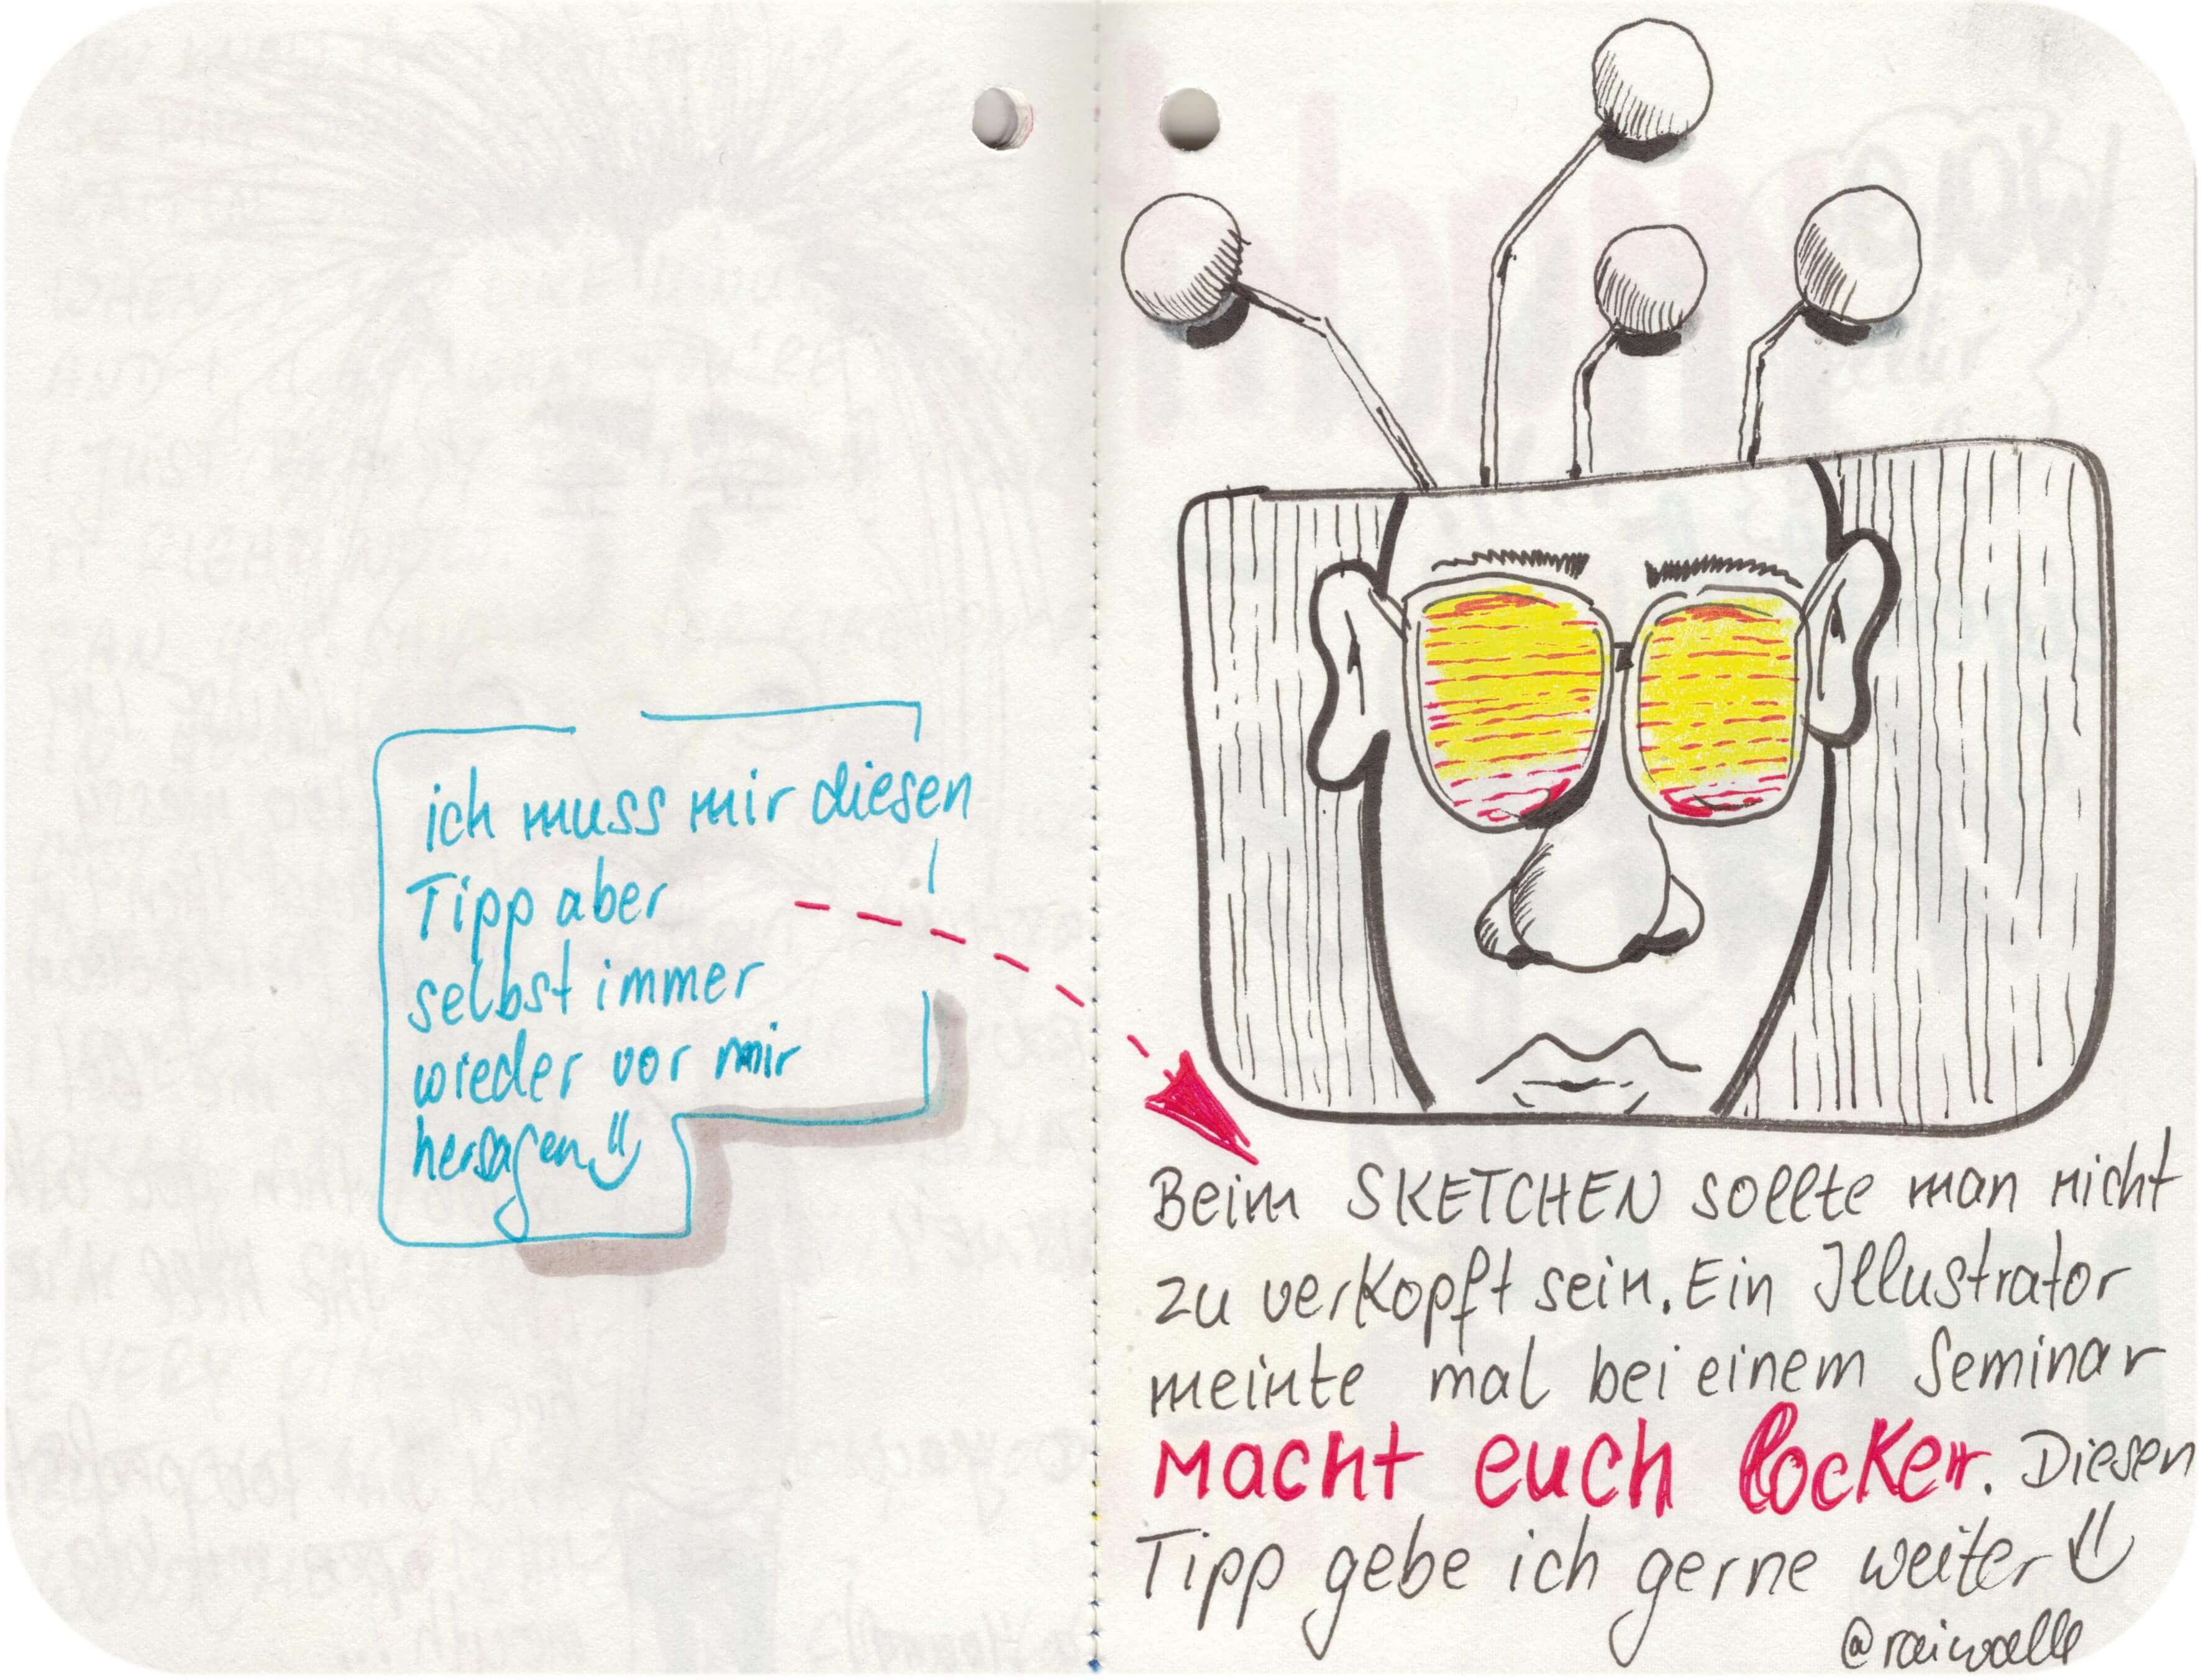 ich muss mir diesen
Tipp aber
selbst immer
wieder vor mir
hersagen
Beim SKETCHEN sollte man nicht
zu verkopft sein. Ein Illustrator
meinte mal bei einem Seminar
macht euch locker. Diesen
Tipp gebe ich gerne weiter
@raiwalle